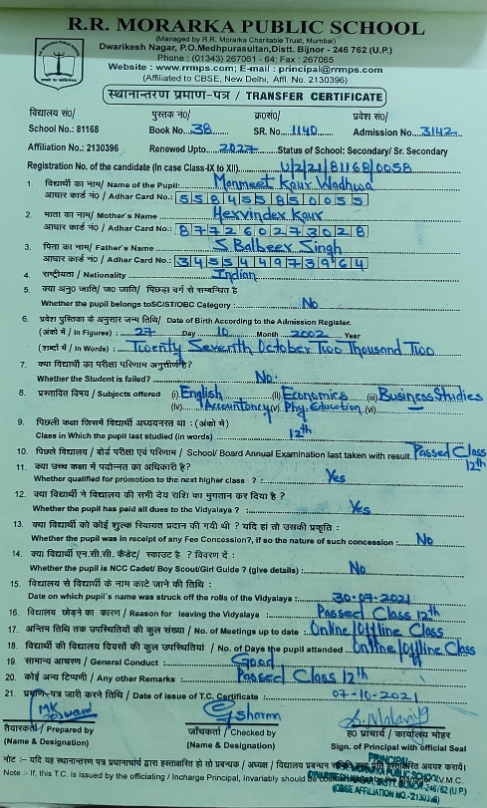 R.R. MORARKA PUBLIC SCHOOL
(Managed by R.R. Morarka Charitable Trust, Mumbai)
Dwarikesh Nagar, P.O.Medhpurasultan,Distt. Bijnor - 246 762 (U.P.)
Phone : (01343) 267061 - 64; Fax : 267065
Website : www.rrmps.com; E-mail : principal@rrmps.com
(Affiliated to CBSE, New Delhi, Affl. No. 2130396)
स्थानान्तरण प्रमाण-पत्र / TRANSFER CERTIFICATE
विद्यालय सं०/ पुस्तक नं०/ क्र०सं०/ प्रवेश सं०/
School No.: 81168 Book No. 38 SR. No. 1140 Admission No. 3142
Affiliation No.: 2130396 Renewed Upto. 2027 Status of School: Secondary/ Sr. Secondary
Registration No. of the candidate (in Case Class-IX to XII) U/2/21/81168/0058
1. विद्यार्थी का नाम/ Name of the Pupil: Manmeet Kaur Wadhwa
आधार कार्ड नं०/ Adhar Card No.: 558455850055
2. माता का नाम/ Mother's Name Hervinder Kaur
आधार कार्ड नं०/ Adhar Card No.: 877260273028
3. पिता का नाम/ Father's Name S. Balbeer Singh
आधार कार्ड नं०/ Adhar Card No.: 345544973964
4. राष्ट्रीयता / Nationality Indian
5. क्या अनु० जाति/ ज० जाति/ पिछड़ा वर्ग से सम्बन्धित है
Whether the pupil belongs toSC/ST/OBC Category : No
6. प्रवेश पुस्तिका के अनुसार जन्म तिथि/ Date of Birth According to the Admission Register.
(अंको में / In Figures) : 27 Day 10 Month 2002 Year
(शब्दों में / In Words) : Twenty Seventh October Two Thousand Two
7. क्या विद्यार्थी का परीक्षा परिणाम अनुत्तीर्ण है?
Whether the Student is failed? No.
8. प्रस्तावित विषय / Subjects offered (i) English (ii) Economics (iii) Business Studies
(iv) Accountancy (v) Phy. Education (vi)
9. पिछली कक्षा जिसमें विद्यार्थी अध्ययनरत था : (अंको में)
Class in Which the pupil last studied (in words) 12th
10. पिछले विद्यालय / बोर्ड परीक्षा एवं परिणाम / School/ Board Annual Examination last taken with result Passed Class 12th
11. क्या उच्च कक्षा में पदोन्नत का अधिकारी है?
Whether qualified for promotion to the next higher class ? : Yes
12. क्या विद्यार्थी ने विद्यालय की सभी देय राशि का भुगतान कर दिया है ?
Whether the pupil has paid all dues to the Vidyalaya ? : Yes
13. क्या विद्यार्थी को कोई शुल्क रियायत प्रदान की गयी थी ? यदि हां तो उसकी प्रकृति :
Whether the pupil was in receipt of any Fee Concession?, if so the nature of such concession : No
14. क्या विद्यार्थी एन.सी.सी. कैडेट/ स्काउट है ? विवरण दें :
Whether the pupil is NCC Cadet/ Boy Scout/Girl Guide ? (give details) : No
15. विद्यालय से विद्यार्थी के नाम काटे जाने की तिथि :
Date on which pupil's name was struck off the rolls of the Vidyalaya : 30-07-2021
16. विद्यालय छोड़ने का कारण / Reason for leaving the Vidyalaya : Passed Class 12th
17. अन्तिम तिथि तक उपस्थितियों की कुल संख्या / No. of Meetings up to date : Online/Offline Class
18. विद्यार्थी की विद्यालय दिवसों की कुल उपस्थितियां / No. of Days the pupil attended Online/Offline Class
19. सामान्य आचरण / General Conduct : Good
20. कोई अन्य टिप्पणी / Any other Remarks : Passed Class 12th
21. प्रमाण-पत्र जारी करने तिथि / Date of issue of T.C. Certificate 07-10-2021
तैयारकर्ता / Prepared by जाँचकर्ता / Checked by ह० प्राचार्य / कार्यालय मोहर
(Name & Designation) (Name & Designation) Sign. of Principal with official Seal
नोट :- यदि यह स्थानान्तरण पत्र प्रधानाचार्य द्वारा हस्ताक्षरित हो तो प्रबन्धक / अध्यक्ष / विद्यालय प्रबन्धन हस्ताक्षरित अवश्य करायें।
Note :- If, this T.C. is issued by the officiating / Incharge Principal, Invariably should be V.M.C.
PRINCIPAL
MORARKA PUBLIC SCHOOL
DWARIKESH NAGAR, DISTT. BIJNOR-246762 (U.P.)
(CBSE AFFILIATION NO.-2130396)